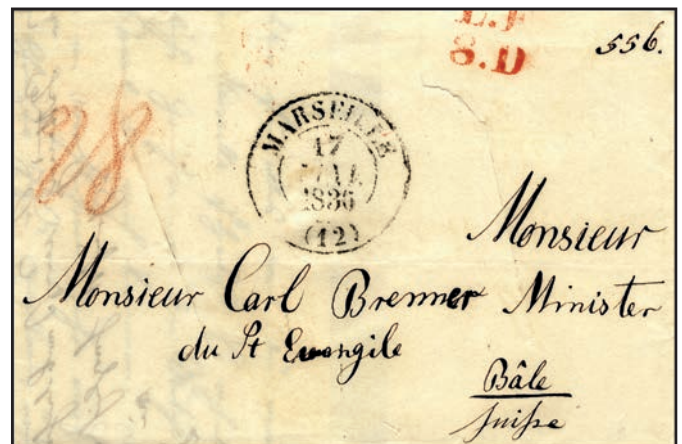 L.F
8.D
556.
28
MARSEILLE
17
MAI
1836
(12)
Monsieur
Monsieur Carl Brenner Minister
du St Evengile
Bâle
Suisse